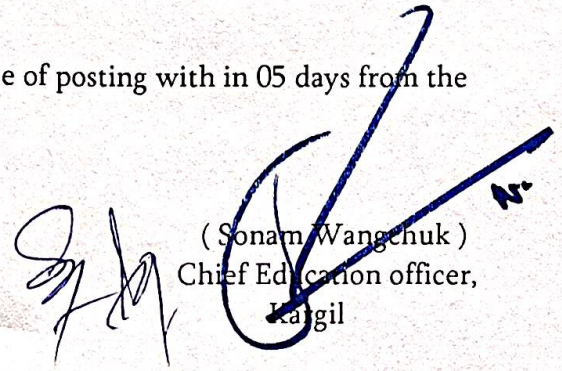 e of posting with in 05 days from the
( Sonam Wangchuk )
Chief Education officer,
Kargil